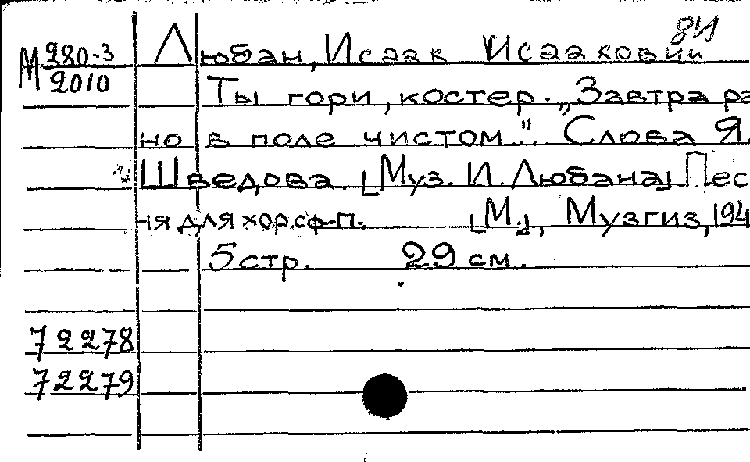 ви
М 280-3 Любан, Исаак Исаакович
2010 Ты гори, костер. „Завтра ра
но в поле чистом". Слова Я.
Шведова. [Муз. И. Любана] Пес
ня для хор. с ф-п. [М.], Музгиз, 194
5 стр. 29 см.
72278
72279